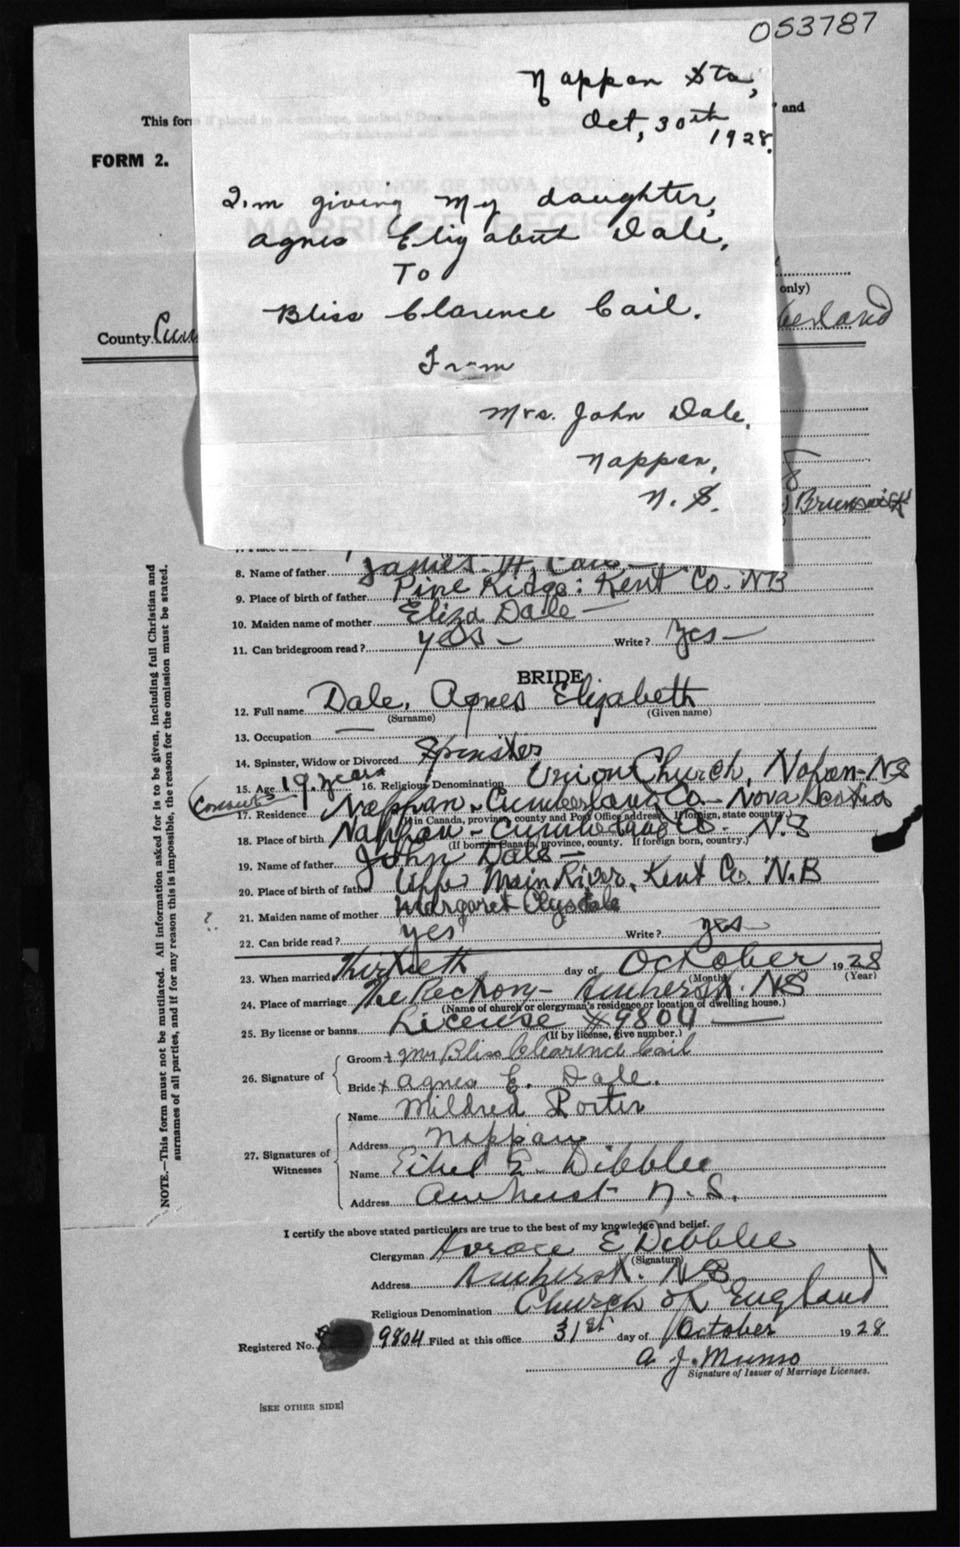 053787
Nappan Sta,
Oct, 30th
1928.
This for
and
FORM 2.
PROVINCE OF NOVA SCOTIA
MARRIAGE REGISTER
I.m giving my daughter,
Agnes Elizabeth Dale,
To
Bliss Clarence Cail.
From
Mrs. John Dale,
Nappan,
N. S.
only)
County. Cum
berland
Brunswick
8. Name of father James. H. Cail
9. Place of birth of father Pine Ridge: Kent Co. NB
10. Maiden name of mother Eliza Dale —
11. Can bridegroom read? yes — Write? Yes —
BRIDE
12. Full name Dale, Agnes Elizabeth
(Surname) (Given name)
13. Occupation —
14. Spinster, Widow or Divorced Spinster
15. Age 19. years 16. Religious Denomination Union Church, Napan - NS
17. Residence Nappan - Cumberland Co - Nova Scotia
(If in Canada, province, county and Post Office address. If foreign, state country.)
18. Place of birth Nappan - Cumberland Co. N.S
(If born in Canada, province, county. If foreign born, country.)
19. Name of father John Dale —
20. Place of birth of father Upper Main River, Kent Co. N.B
21. Maiden name of mother Margaret Clysdale
22. Can bride read? yes Write? yes
23. When married Thirtieth day of October 1928
(Month) (Year)
24. Place of marriage The Rectory - Amherst. NS
(Name of church or clergyman's residence or location of dwelling house.)
25. By license or banns License #9804 —
(If by license, give number.)
26. Signature of
Groom Mr Bliss Clearence Cail
Bride x Agnes E. Dale.
27. Signatures of Witnesses
Name Mildred Porter
Address Nappan
Name Ethel E. Dibblee
Address Amherst N. S.
I certify the above stated particulars are true to the best of my knowledge and belief.
Clergyman Horace E. Dibblee
(Signature)
Address Amherst. NS
Religious Denomination Church of England
Registered No. 9804 Filed at this office 31st day of October 1928
A. J. Munro
Signature of Issuer of Marriage Licenses.
[SEE OTHER SIDE]
NOTE.—This form must not be mutilated. All information asked for is to be given, including full Christian and
surnames of all parties, and if for any reason this is impossible, the reason for the omission must be stated.